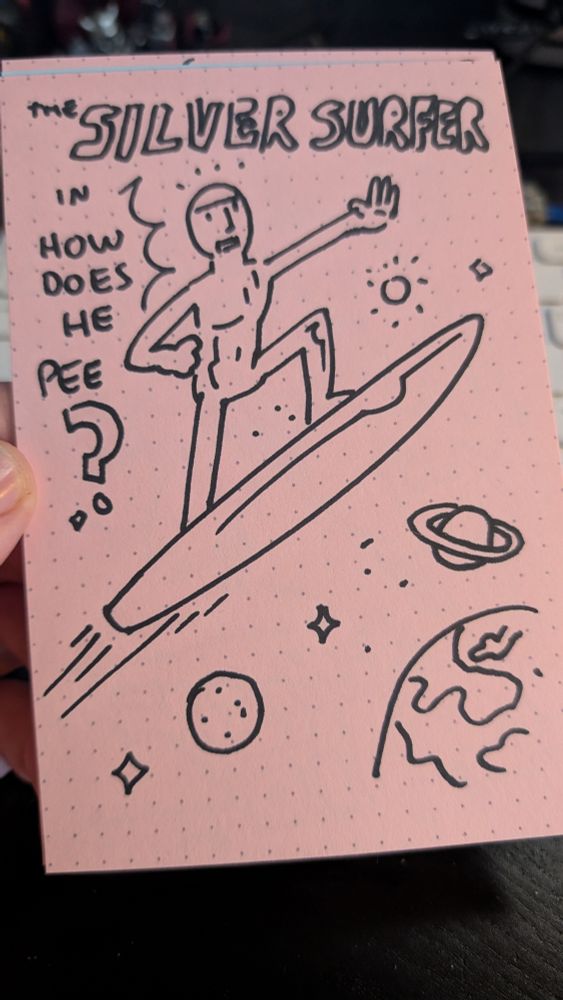 THE SILVER SURFER
IN
HOW
DOES
HE
PEE
?